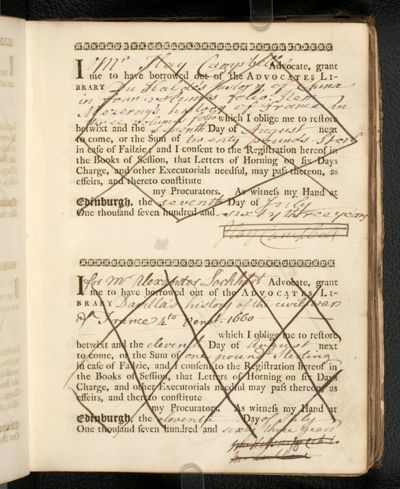 I Mr Ilay Campbell Advocate, grant
me to have borrowed out of the ADVOCATES LI-
BRARY Du Halde's history of China
in four volumes folio Item
Mezeray's history of France in
three volumes folio which I oblige me to restore
betwixt and the seventh Day of August next
to come, or the Sum of twenty pounds Ster
in case of Failzie, and I consent to the Registration hereof in
the Books of Session, that Letters of Horning on six Days
Charge, and other Executorials needful, may pass thereon, as
effeirs, and thereto constitute
my Procurators. As witness my Hand at
Edinburgh, the seventh Day of July
One thousand seven hundred and sixty three years
Ilay Campbell
I for Mr Alexander Lockhart Advocate, grant
me to have borrowed out of the ADVOCATES LI-
BRARY Davilla's history of the civil wars
of France 4to 1660
which I oblige me to restore
betwixt and the eleventh Day of August next
to come, or the Sum of one pound Sterling
in case of Failzie, and I consent to the Registration hereof in
the Books of Session, that Letters of Horning on six Days
Charge, and other Executorials needful may pass thereon, as
effeirs, and thereto constitute
my Procurators. As witness my Hand at
Edinburgh, the eleventh Day of July
One thousand seven hundred and sixty three years